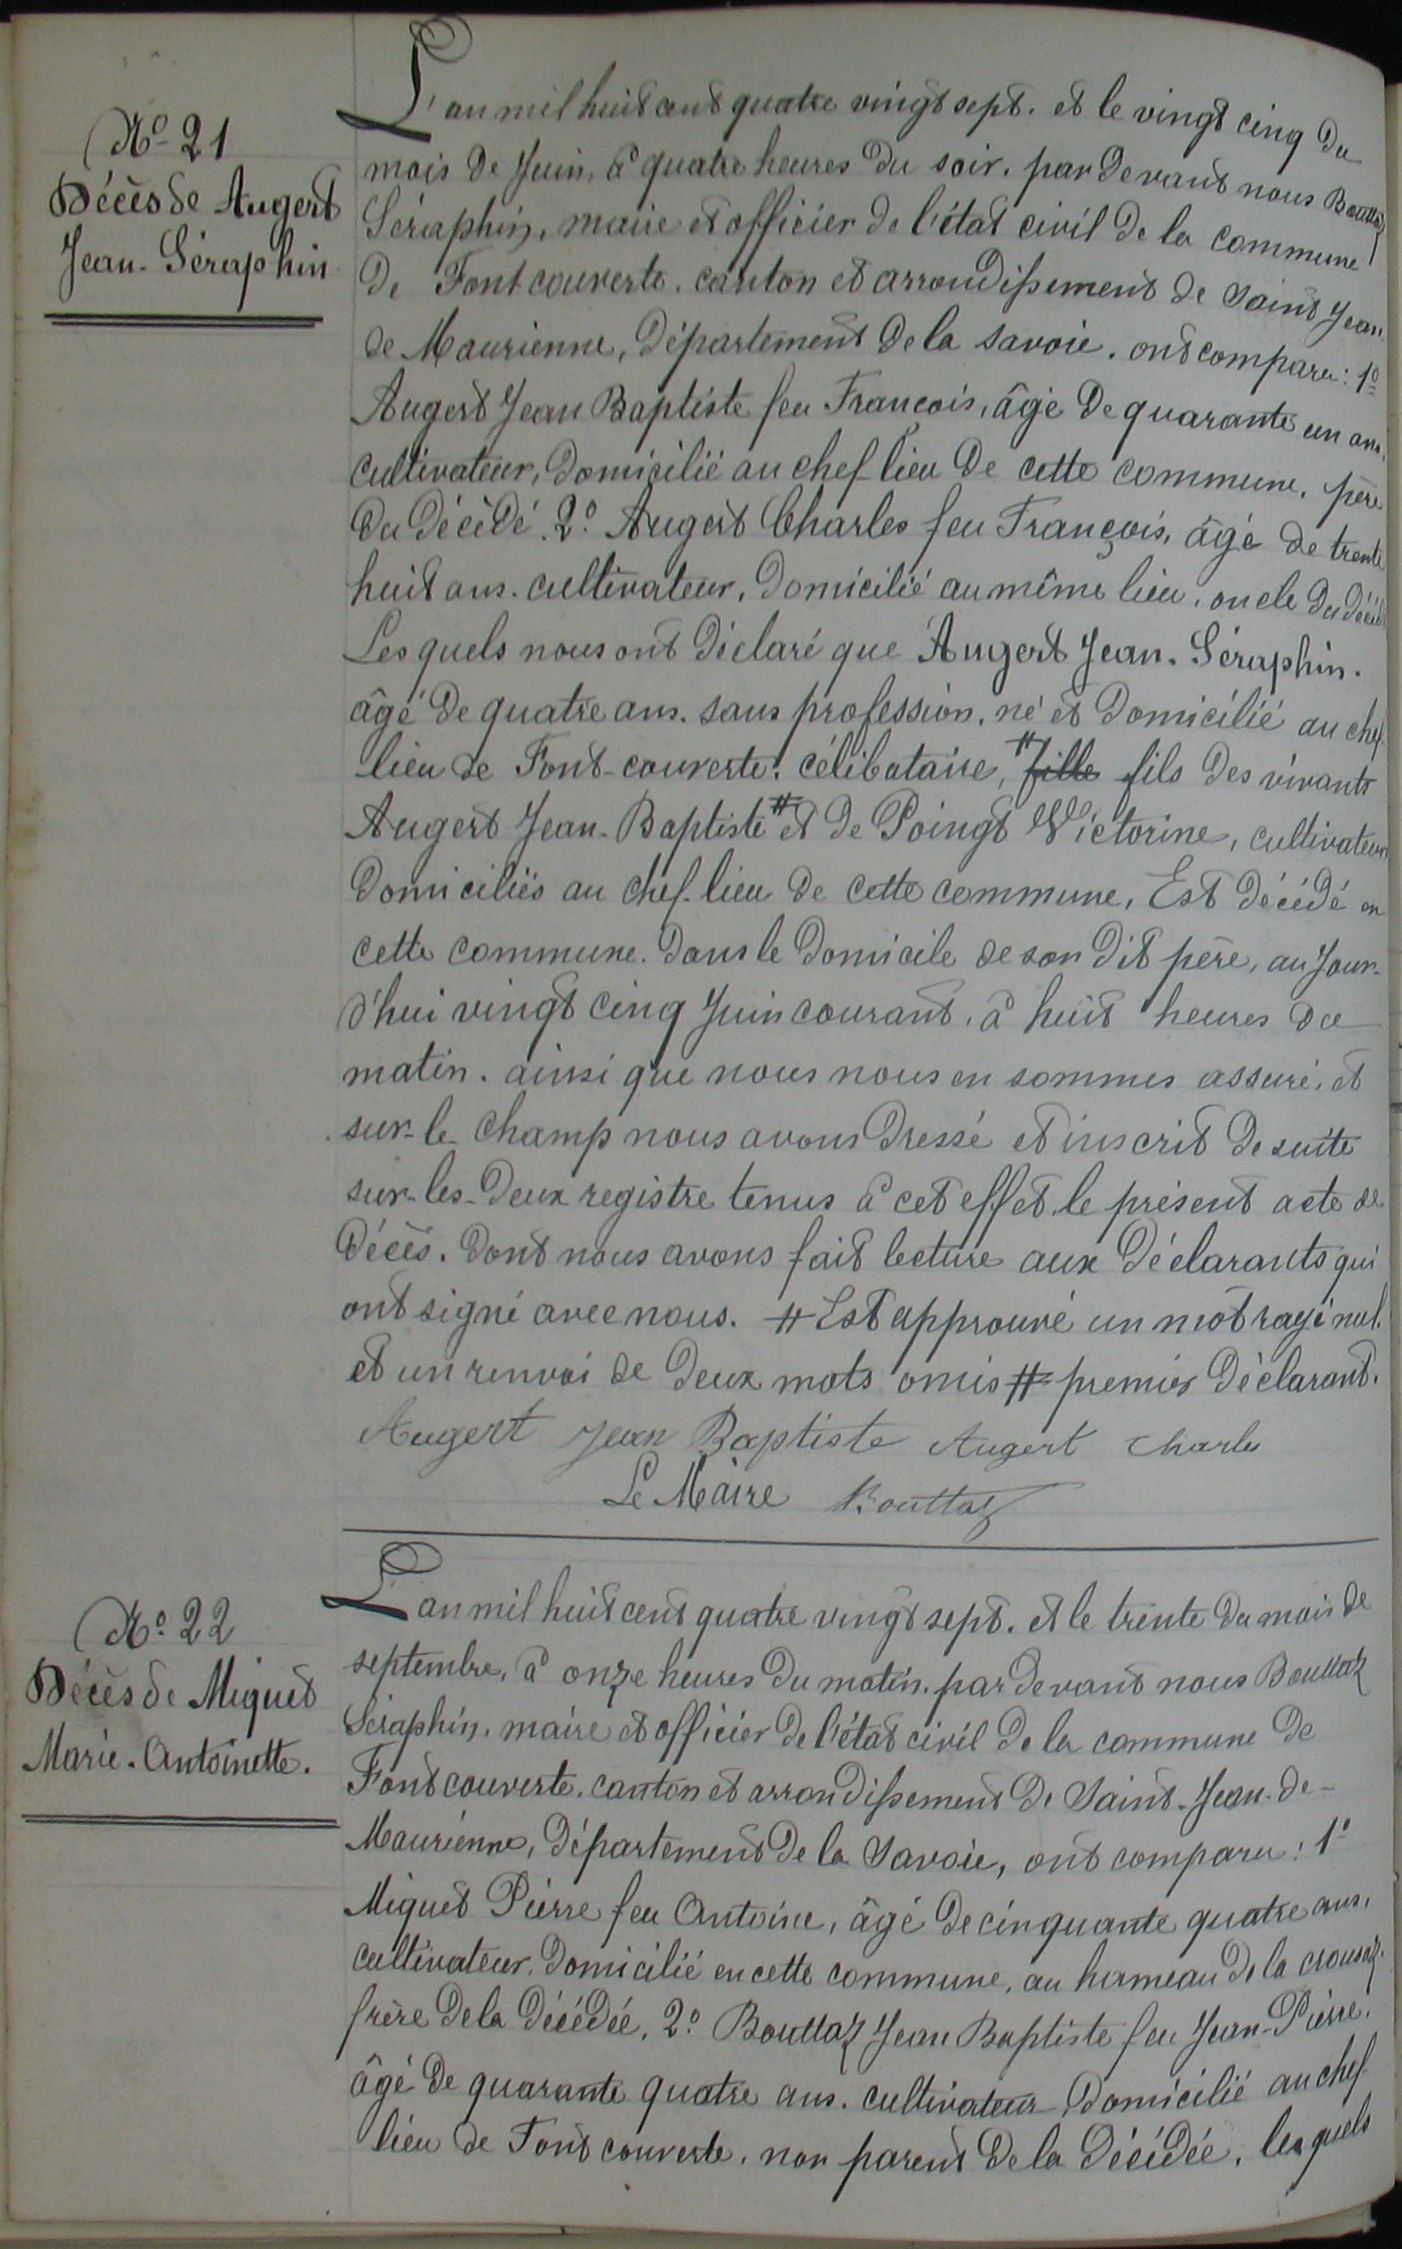 N° 21
Décès de Augert
Jean-Séraphin
L'an mil huit cent quatre vingt sept. et le vingt cinq du
mois de Juin, à quatre heures du soir. par devant nous Bouttaz
Séraphin, maire et officier de l'état civil de la commune
de Fontcouverte. canton et arrondissement de Saint Jean
de Maurienne, département de la Savoie. ont comparu: 1°
Augert Jean Baptiste feu François, âgé de quarante un ans,
cultivateur, domicilié au chef lieu de cette commune, père
du décédé. 2° Augert Charles feu François, âgé de trente
huit ans. cultivateur, domicilié au même lieu, oncle du décédé
Les quels nous ont déclaré que Augert Jean-Séraphin.
âgé de quatre ans. sans profession, né et domicilié au chef-
lieu de Font-couverte. célibataire, # fille fils des vivants
Augert Jean-Baptiste # et de Poingt Victorine, cultivateurs
domiciliés au chef-lieu de cette commune, Est décédé en
cette commune. dans le domicile de son dit père, au Jour-
d'hui vingt cinq Juin courant, à huit heures du
matin. ainsi que nous nous en sommes assuré, et
sur-le-champ nous avons dressé et inscrit de suite
sur-les-deux registre tenus à cet effet le présent acte de
décès. dont nous avons fait lecture aux déclarants qui
ont signé avec nous. # Est approuvé un mot rayé nul.
et un renvoi de deux mots omis # premier déclarant.
Augert Jean Baptiste Augert Charles
Le Maire Bouttaz
N° 22
Décès de Miguet
Marie-Antoinette.
L'an mil huit cent quatre vingt sept. et le trente du mois de
septembre, à onze heures du matin. par devant nous Bouttaz
Séraphin, maire et officier de l'état civil de la commune de
Fontcouverte. canton et arrondissement de Saint-Jean-de-
Maurienne, département de la Savoie, ont comparu: 1°
Miguet Pierre feu Antoine, âgé de cinquante quatre ans,
cultivateur, domicilié en cette commune, au hameau de la crousaz.
frère de la décédée, 2° Bouttaz Jean Baptiste feu Jean-Pierre,
âgé de quarante quatre ans. cultivateur, domicilié au chef-
lieu de Fontcouverte, non parent de la décédée, les quels